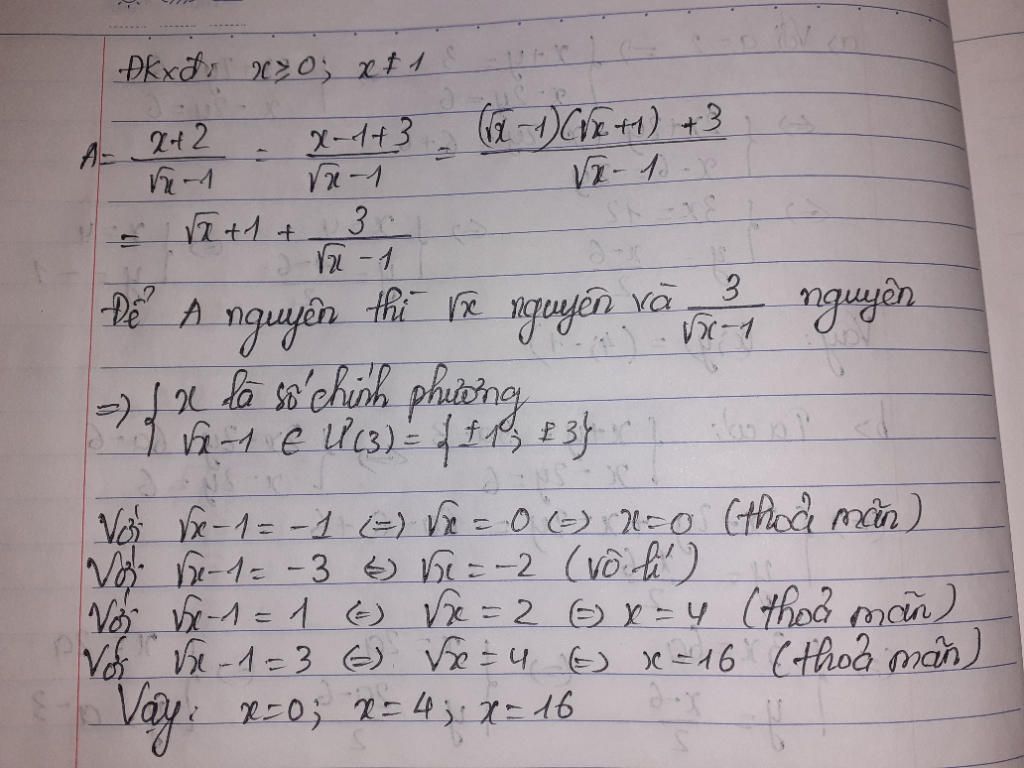 ĐKxđ: x ≥ 0; x ≠ 1
A = (x+2)/(√x −1) = (x−1+3)/(√x −1) = ((√x −1)(√x +1) +3)/(√x −1)
= √x +1 + 3/(√x −1)
Để A nguyên thì √x nguyên và 3/(√x−1) nguyên
=> { x là số chính phương
√x −1 ∈ Ư(3) = {±1; ±3}
Với √x −1 = −1 <=> √x = 0 <=> x=0 (thoả mãn)
Với √x −1 = −3 <=> √x = −2 (vô lí)
Với √x −1 = 1 <=> √x = 2 <=> x = 4 (thoả mãn)
Với √x −1 = 3 <=> √x = 4 <=> x = 16 (thoả mãn)
Vậy: x=0; x=4; x=16